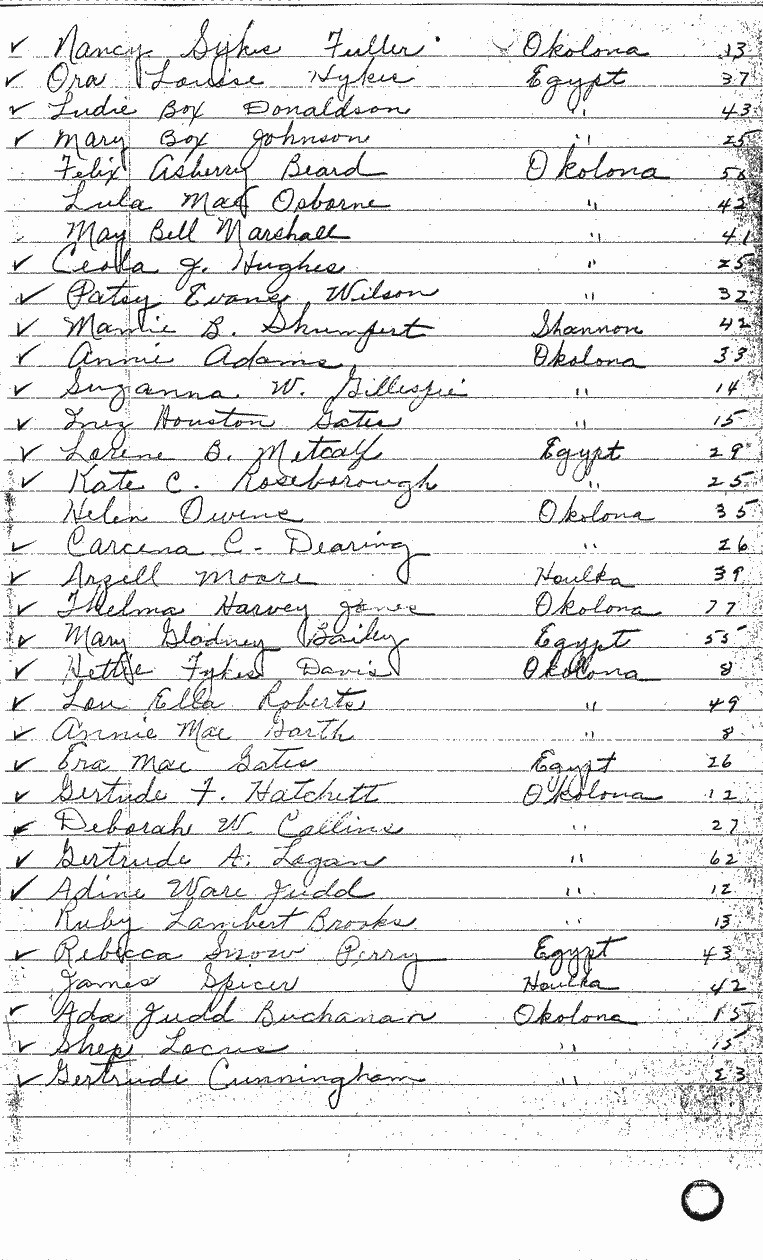 ✓ Nancy Sykes Fuller Okolona 13
✓ Ora Louise Sykes Egypt 37
✓ Ludie Box Donaldson " 43
✓ Mary Box Johnson " 25
Felix Asberry Beard Okolona
Lula Mae Osborne " 42
May Bell Marshall " 41
✓ Ceola J. Hughes " 25
✓ Patsy Evans Wilson " 32
✓ Mamie B. Shumpert Shannon 42
✓ Annie Adams Okolona 33
✓ Suzanna W. Gillespie " 14
✓ Inez Houston Gates " 15
✓ Lorene B. Metcalf Egypt 29
✓ Kate C. Roseborough " 25
Helen Owens Okolona 35
✓ Carcena C. Dearing " 26
✓ Argell Moore Houlka 39
✓ Thelma Harvey Jones Okolona 77
✓ Mary Glodney Bailey Egypt 55
✓ Hettie Fykes Davis Okolona 8
✓ Lou Ella Roberts " 49
✓ Annie Mae Garth " 8
✓ Era Mae Gates Egypt 26
✓ Gertude F. Hatchett Okolona 12
✓ Deborah W. Collins " 27
✓ Gertrude A. Logan " 62
✓ Adine Ware Judd " 12
Ruby Lambert Brooks " 13
✓ Rebecca Snow Perry Egypt 43
James Spicer Houlka 42
✓ Ada Judd Buchanan Okolona 15
✓ Shep Locus " 15
✓ Gertrude Cunningham " 23